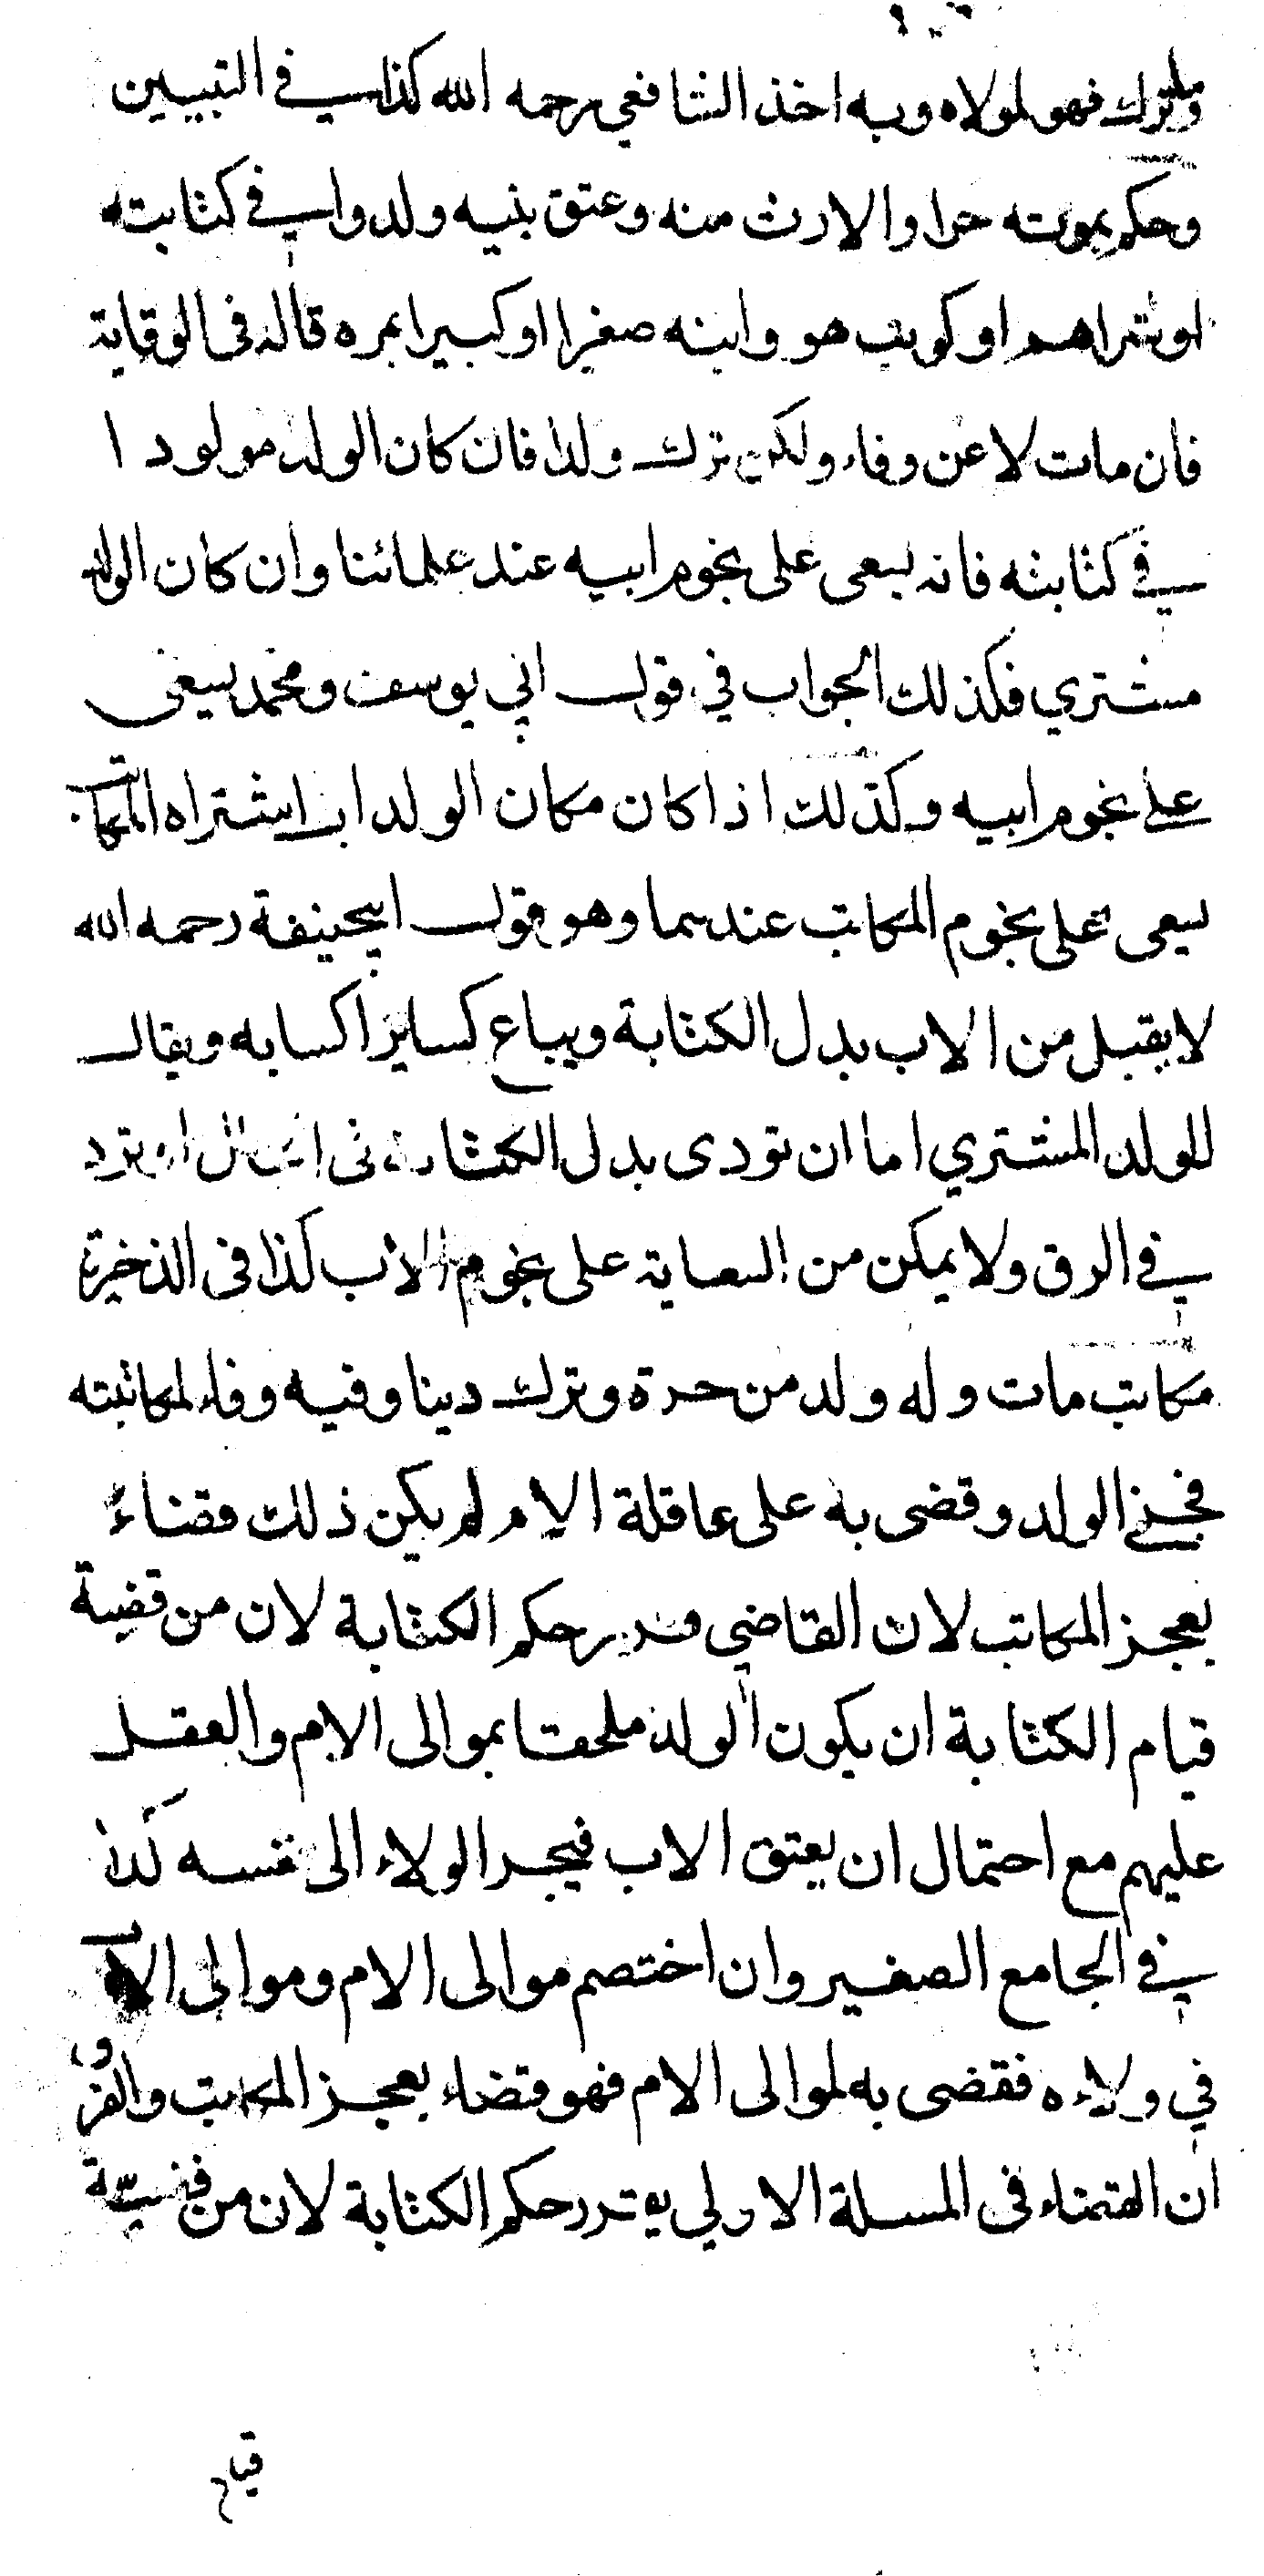 وما ترك فهو لمولاه وبه اخذ الشافعي رحمه الله كذا في التبيين
وحكم بموته حرا والارث منه وعتق بنيه ولدوا في كتابته
او شراهم او كوتب هو وابنه صغيرا او كبيرا بمره قاله فى الوقاية
فان مات لا عن وفاء ولكن ترك ولدا فان كان الولد مولودا
في كتابته فانه يسعى على نجوم ابيه عند علمائنا وان كان الولد
مشتري فكذلك الجواب في قول ابي يوسف ومحمد يسعى
على نجوم ابيه وكذلك اذا كان مكان الولد اب اشتراه المكاتب
يسعى على نجوم المكاتب عندهما وهو قول ابيحنيفة رحمه الله
لا يقبل من الاب بدل الكتابة ويباع كساير اكسابه ويقال
للولد المشتري اما ان تودى بدل الكتابة فى الحال او ترد
في الرق ولا يمكن من السعاية على نجوم الاب كذا فى الذخيرة
مكاتب مات وله ولد من حرة وترك دينا وفيه وفاء لمكاتبته
فجنى الولد وقضى به على عاقلة الام لم يكن ذلك قضاءً
بعجز المكاتب لان القاضي قرر حكم الكتابة لان من قضية
قيام الكتابة ان يكون الولد ملحقا بموالى الام والعقل
عليهم مع احتمال ان يعتق الاب فيجر الولاء الى نفسه كذا
في الجامع الصغير وان اختصم موالى الام وموالى الاب
في ولاءه فقضى به لموالى الام فهو قضاء بعجز المكاتب والفرق
ان القضاء فى المسلة الاولي يقرر حكم الكتابة لان من قضية
قيام